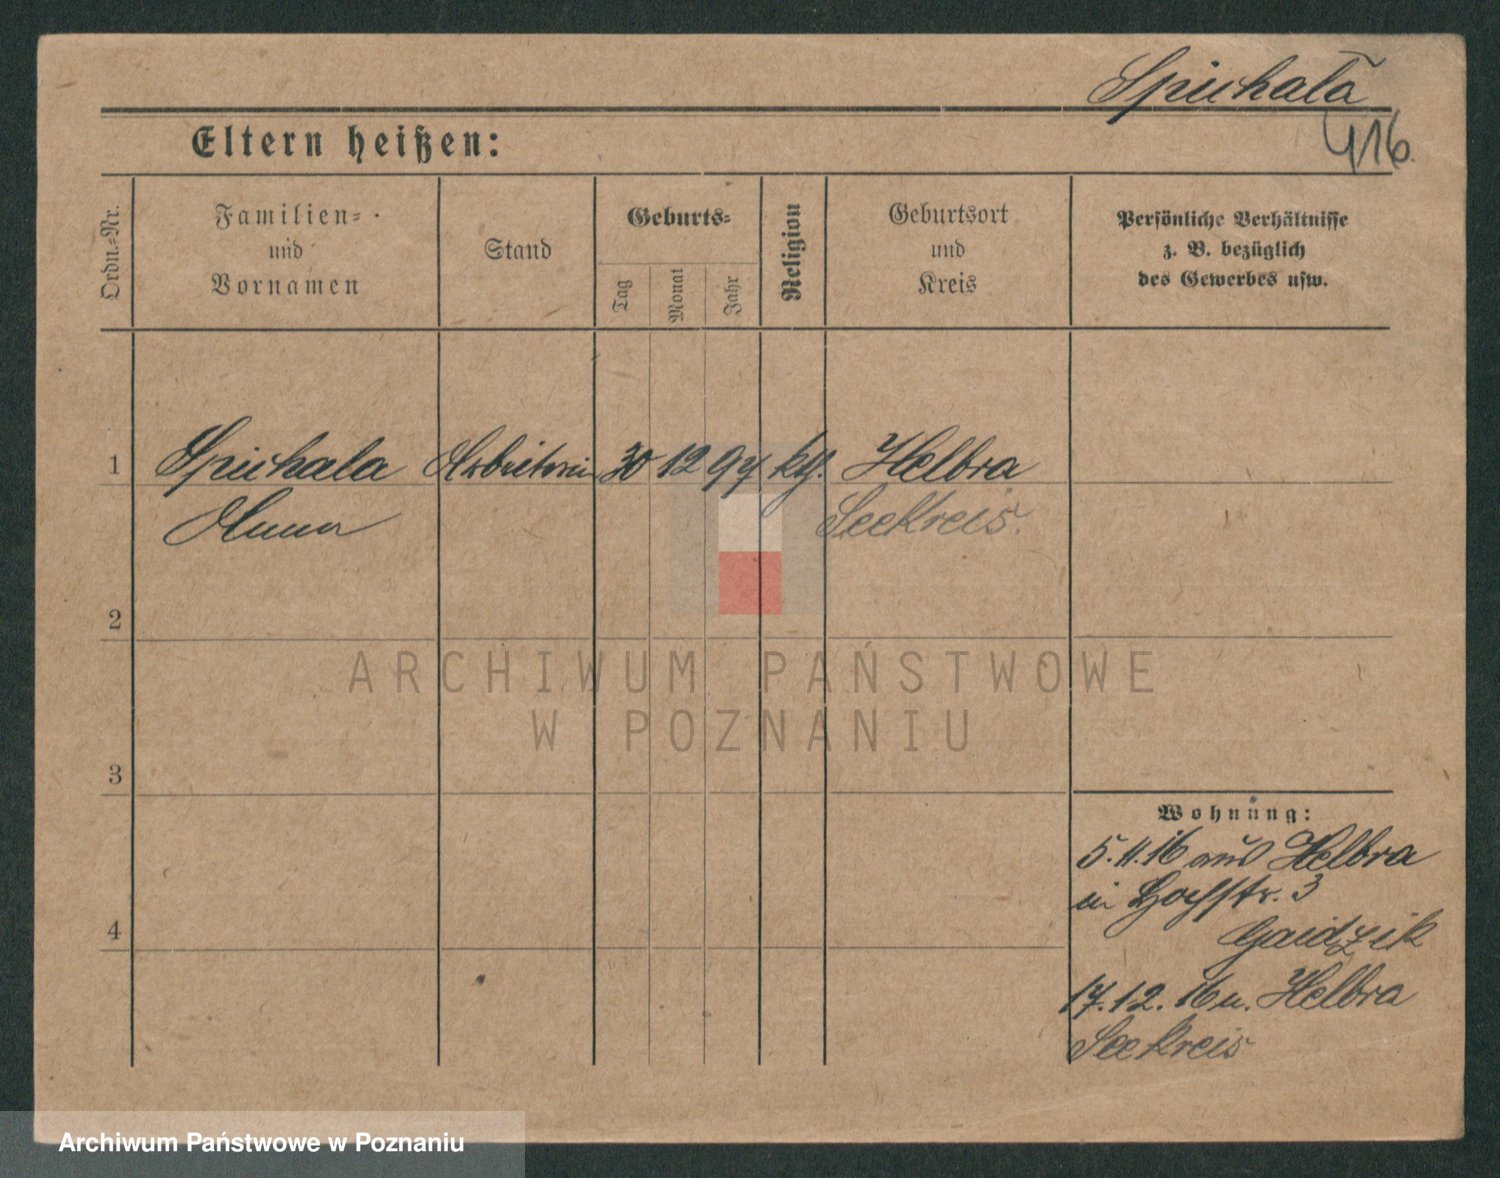 Spichala
416
Eltern heißen:
Ordn.-Nr.
Familien-
und
Vornamen
Stand
Geburts-
Tag
Monat
Jahr
Religion
Geburtsort
und
Kreis
Persönliche Verhältnisse
z. B. bezüglich
des Gewerbes usw.
1
Spichala Arbeiterin 30 12 94 kg. Helbra
Seekreis.
2
3
4
Wohnung:
5.11.16 aus Helbra
in Hochstr. 3
Gaidzik
17.12.16 n. Helbra
Seekreis
ARCHIWUM PAŃSTWOWE
W POZNANIU
Archiwum Państwowe w Poznaniu